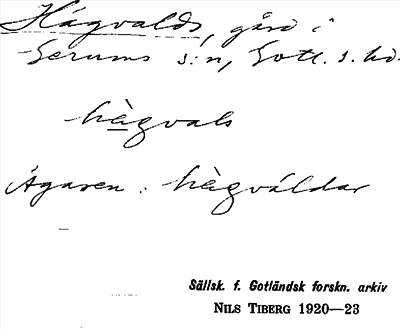 Hägvalds, gård i
Gerums s:n, Gotl. s. hd.
hägvals
Ägaren: hägváldar
Sällsk. f. Gotländsk forskn. arkiv
NILS TIBERG 1920—23